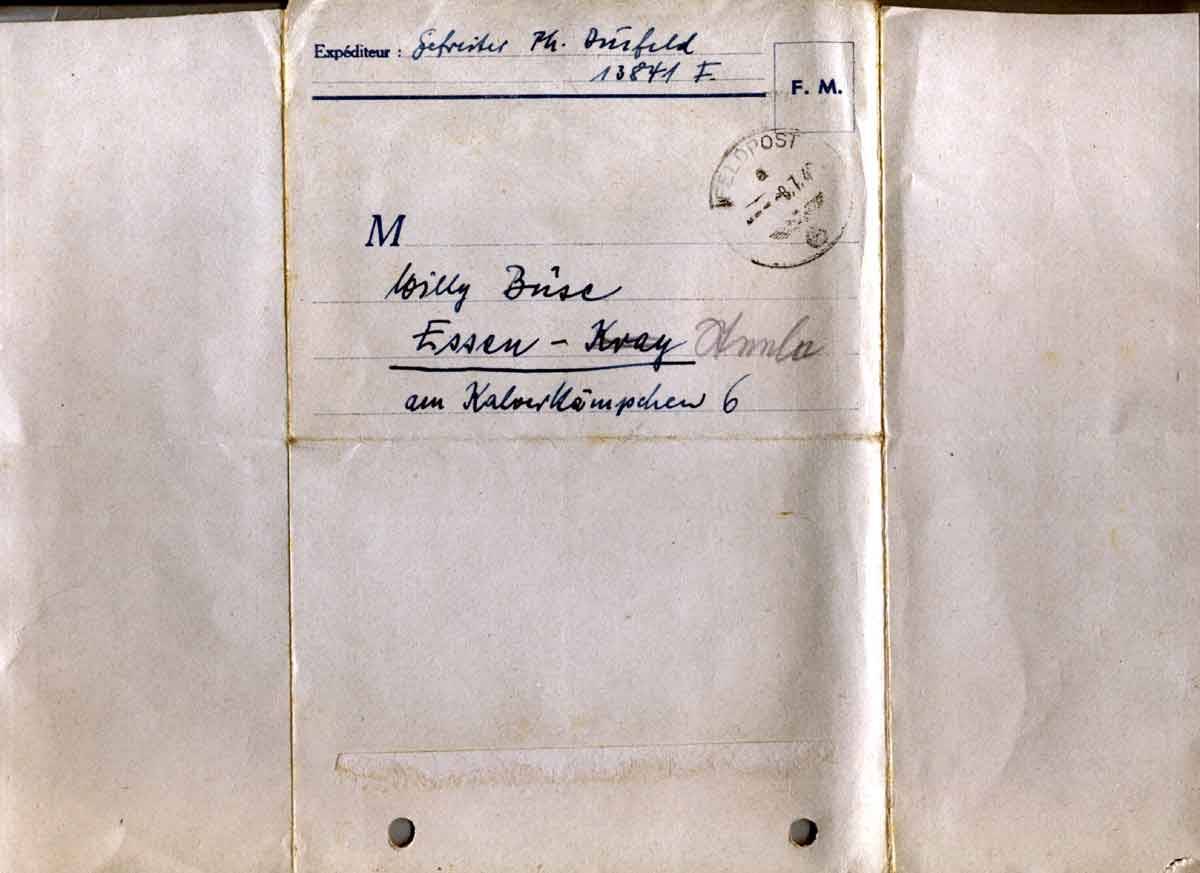 Expéditeur : Gefreiter Ph.
13841 F.
F. M.
FELDPOST
a
M
Willy Büse
Essen - Kray
am Kalverkämpchen 6